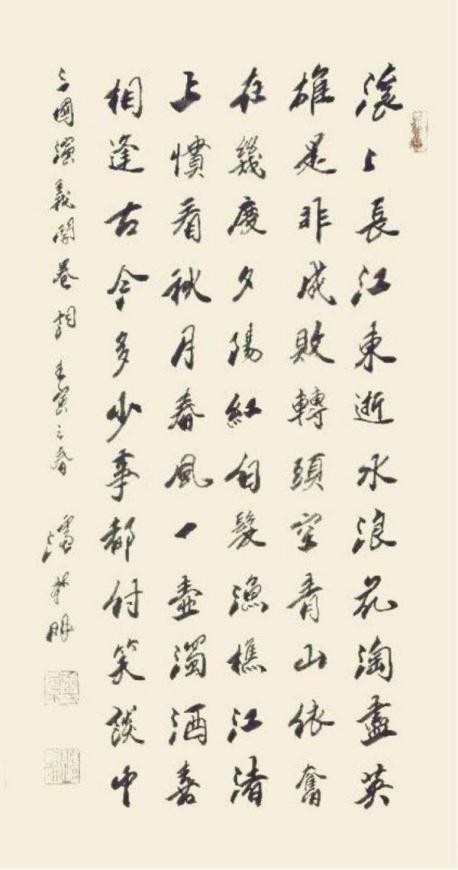 滚々長江東逝水浪花淘盡英
雄是非成敗轉頭空青山依奮
在幾度夕陽紅白髮漁樵江渚
上慣看秋月春風一壺濁酒喜
相逢古今多少事都付笑談中
三國演義開卷詞 壬寅之春 潘